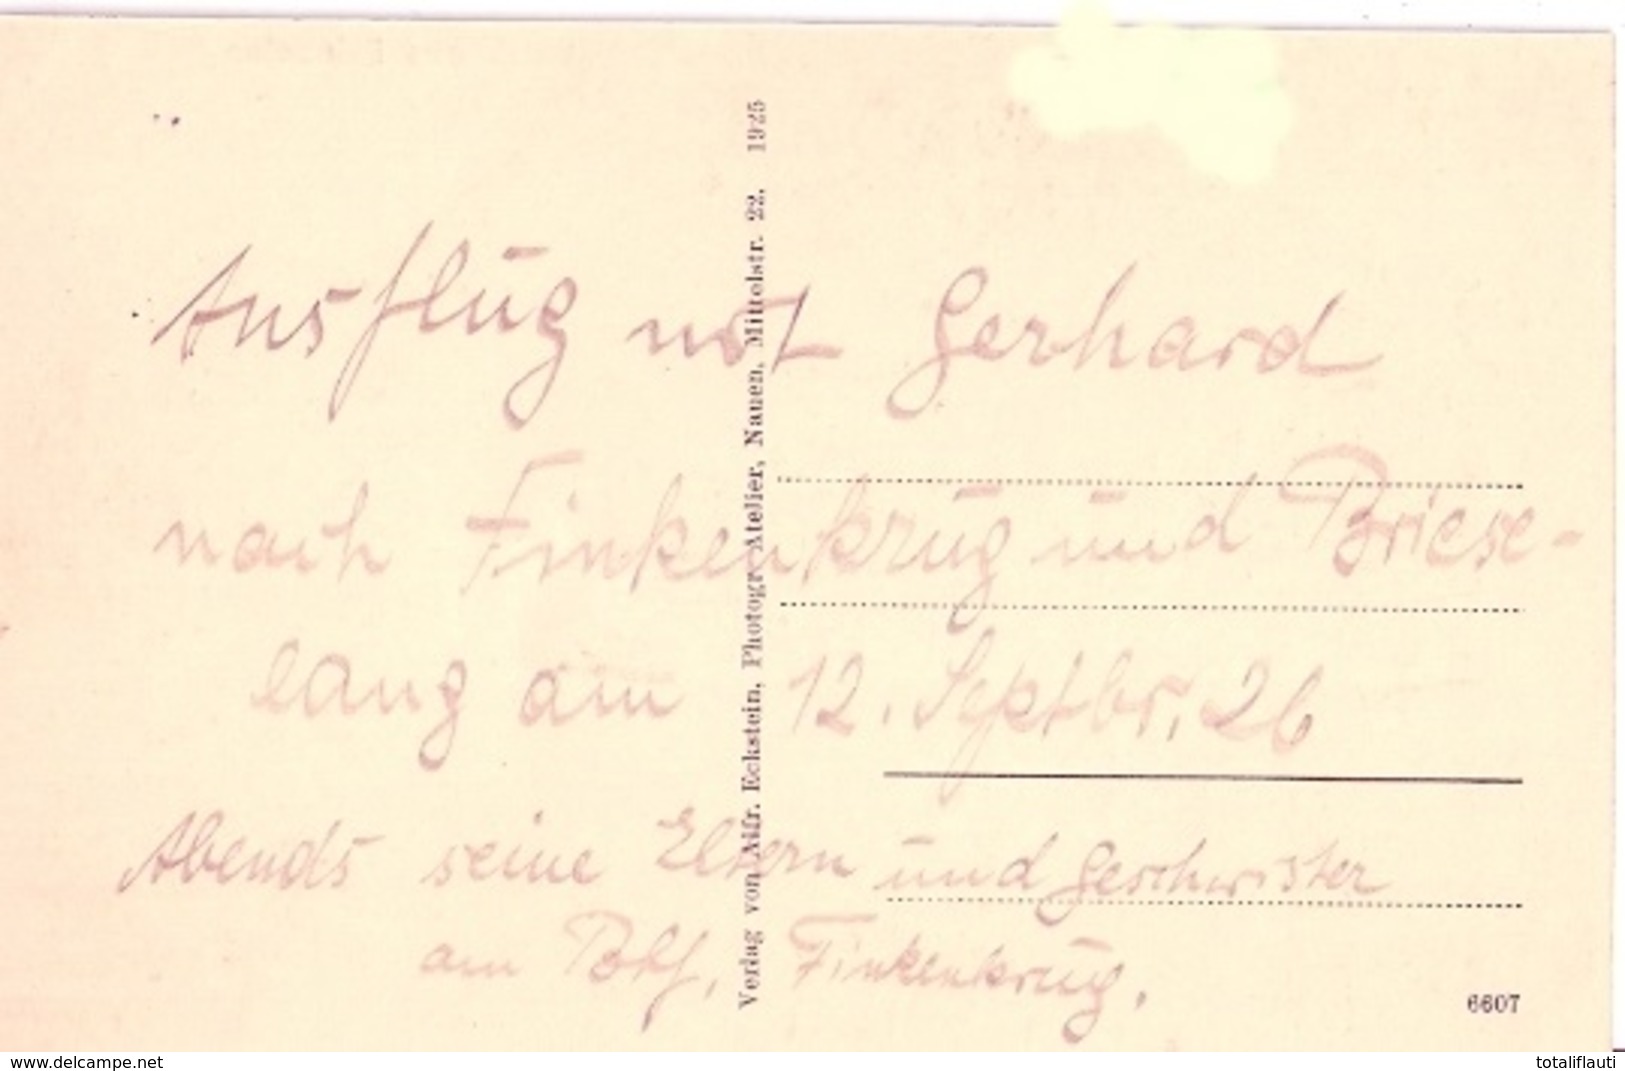 Ausflug mit Gerhard
nach Finkenkrug und Briese-
lang am 12. Septbr. 26
Abends seine Eltern und Geschwister
am Bhf. Finkenkrug.
Verlag von Alfr. Eckstein, Photogr. Atelier, Nauen, Mittelstr. 22. 1925
6607
www.delcampe.net
totaliflauti